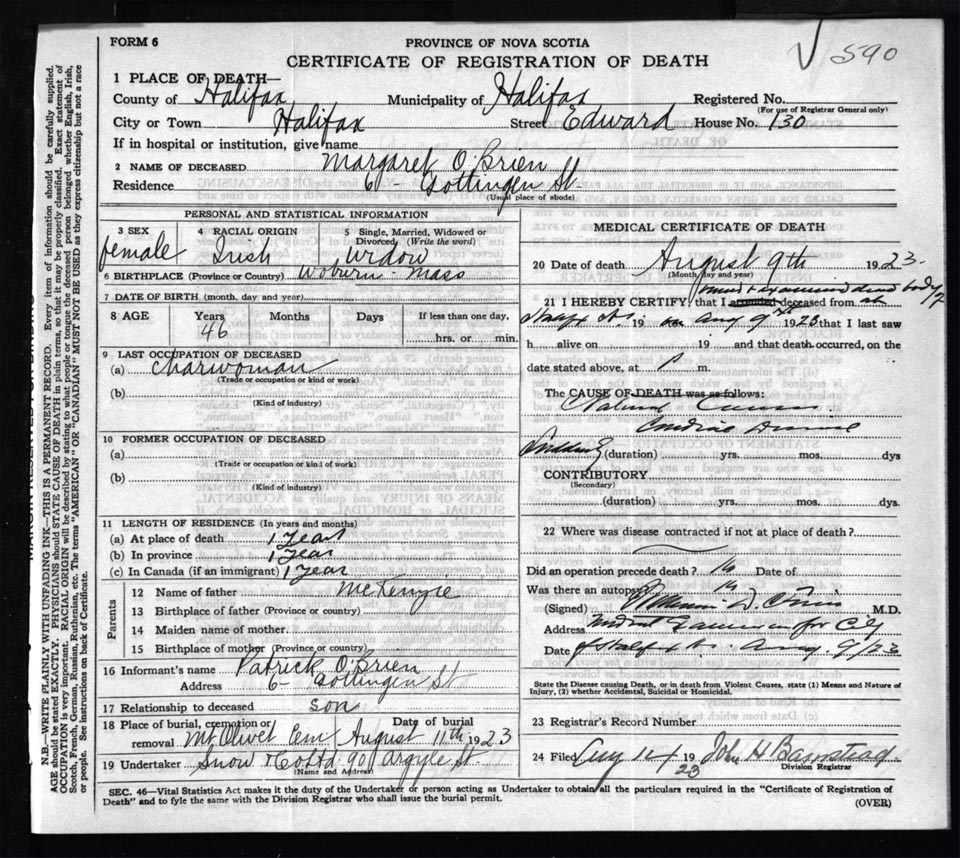 FORM 6
PROVINCE OF NOVA SCOTIA
590
CERTIFICATE OF REGISTRATION OF DEATH
1 PLACE OF DEATH—
County of Halifax Municipality of Halifax Registered No.
(For use of Registrar General only)
City or Town Halifax Street Edward House No. 130
If in hospital or institution, give name
2 NAME OF DECEASED Margaret O'Brien
Residence 6 - Gottingen St.
(Usual place of abode)
PERSONAL AND STATISTICAL INFORMATION
3 SEX 4 RACIAL ORIGIN 5 Single, Married, Widowed or Divorced, (Write the word)
female Irish Widow
6 BIRTHPLACE (Province or Country) Woburn Mass
7 DATE OF BIRTH (month, day and year)
8 AGE Years Months Days If less than one day,
46 hrs. or min.
9 LAST OCCUPATION OF DECEASED
(a) Charwoman
(Trade or occupation or kind or work)
(b)
(Kind of industry)
10 FORMER OCCUPATION OF DECEASED
(a)
(Trade or occupation or kind of work)
(b)
(Kind of industry)
11 LENGTH OF RESIDENCE (In years and months)
(a) At place of death 1 Year
(b) In province 1 Year
(c) In Canada (if an immigrant) 1 Year
Parents
12 Name of father McKenzie
13 Birthplace of father (Province or country)
14 Maiden name of mother
15 Birthplace of mother (Province or country)
16 Informant's name Patrick O'Brien
Address 6 - Gottingen St
17 Relationship to deceased son
18 Place of burial, cremation or removal Mt Olivet Cem Date of burial August 11th 1923
19 Undertaker Snow & Co Ltd 90 Argyle St.
(Name and Address)
MEDICAL CERTIFICATE OF DEATH
20 Date of death August 9th 1923.
(Month, day and year)
21 I HEREBY CERTIFY, that I attended deceased from
examined dead body at
19 Aug 9th 1923 that I last saw
h alive on 19 and that death occurred, on the
date stated above, at P m.
The CAUSE OF DEATH was as follows:
Natural Causes
Cardiac Disease
Suddenly (duration) yrs. mos. dys
CONTRIBUTORY
(Secondary)
(duration) yrs. mos. dys.
22 Where was disease contracted if not at place of death?
Did an operation precede death? No Date of
Was there an autopsy? No
(Signed) M.D.
Address Medical Examiner for City
Date of Halifax Aug. 9/23
State the Disease causing Death, or in death from Violent Causes, state (1) Means and Nature of Injury, (2) whether Accidental, Suicidal or Homicidal.
23 Registrar's Record Number
24 Filed Aug 1923 John H Barnstead
Division Registrar
SEC. 46—Vital Statistics Act makes it the duty of the Undertaker or person acting as Undertaker to obtain all the particulars required in the "Certificate of Registration of
Death" and to fyle the same with the Division Registrar who shall issue the burial permit.
(OVER)
N.B.—WRITE PLAINLY WITH UNFADING INK—THIS IS A PERMANENT RECORD. Every item of information should be carefully supplied.
AGE should be stated EXACTLY. PHYSICIANS should STATE CAUSE OF DEATH in plain terms, so that it may be properly classified. Exact statement of
OCCUPATION is very important. RACIAL ORIGIN will be described by stating to what people or tongue the deceased person belonged whether English, Irish,
Scotch, French, German, Russian, Ruthenian, etc. The terms "AMERICAN" or "CANADIAN" MUST NOT BE USED as they express citizenship but not a race
or people. See instructions on back of Certificate.